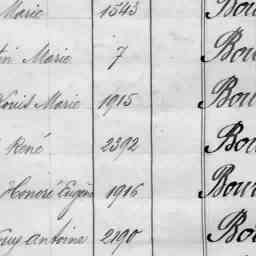 Marie 1543 Bou
Marie 7 Bou
Louis Marie 1915 Bou
René 2392 Bou
Honoré Eugène 1916 Bou
Guy Antoine 2190 Bou